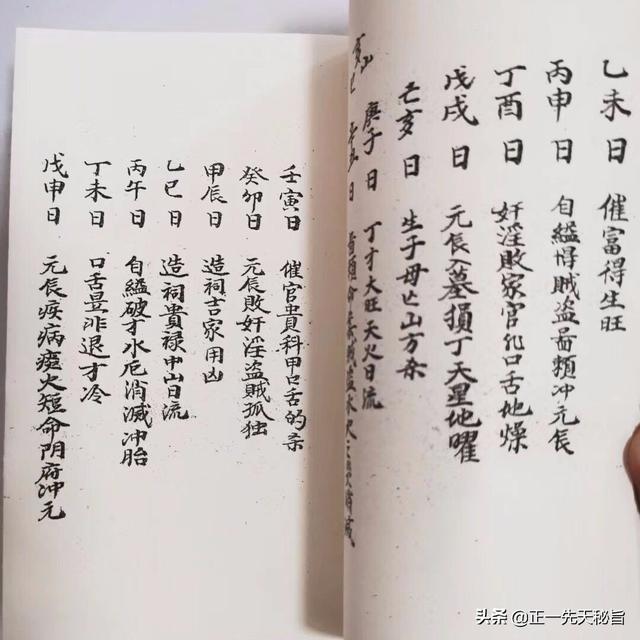 乙未日 催富得生旺
丙申日 自縊悖賊盗冒頪冲元辰
丁酉日 奸淫敗家官犯口舌地燥
戊戌日 元辰入墓損丁天星地曜
亥日 生子母亡山方杀
庚子日 丁才大旺天火日流
日 賊盗水
壬寅日 催官貴科甲口舌的杀
癸卯日 元辰敗奸淫盗賊孤独
甲辰日 造祠吉家用凶
乙巳日 造祠貴禄中山日流
丙午日 自縊破才水厄消滅冲胎
丁未日 口舌昰非退才冷
戊申日 元辰疾病瘟火短命阴府冲元
头条 @正一先天秘旨